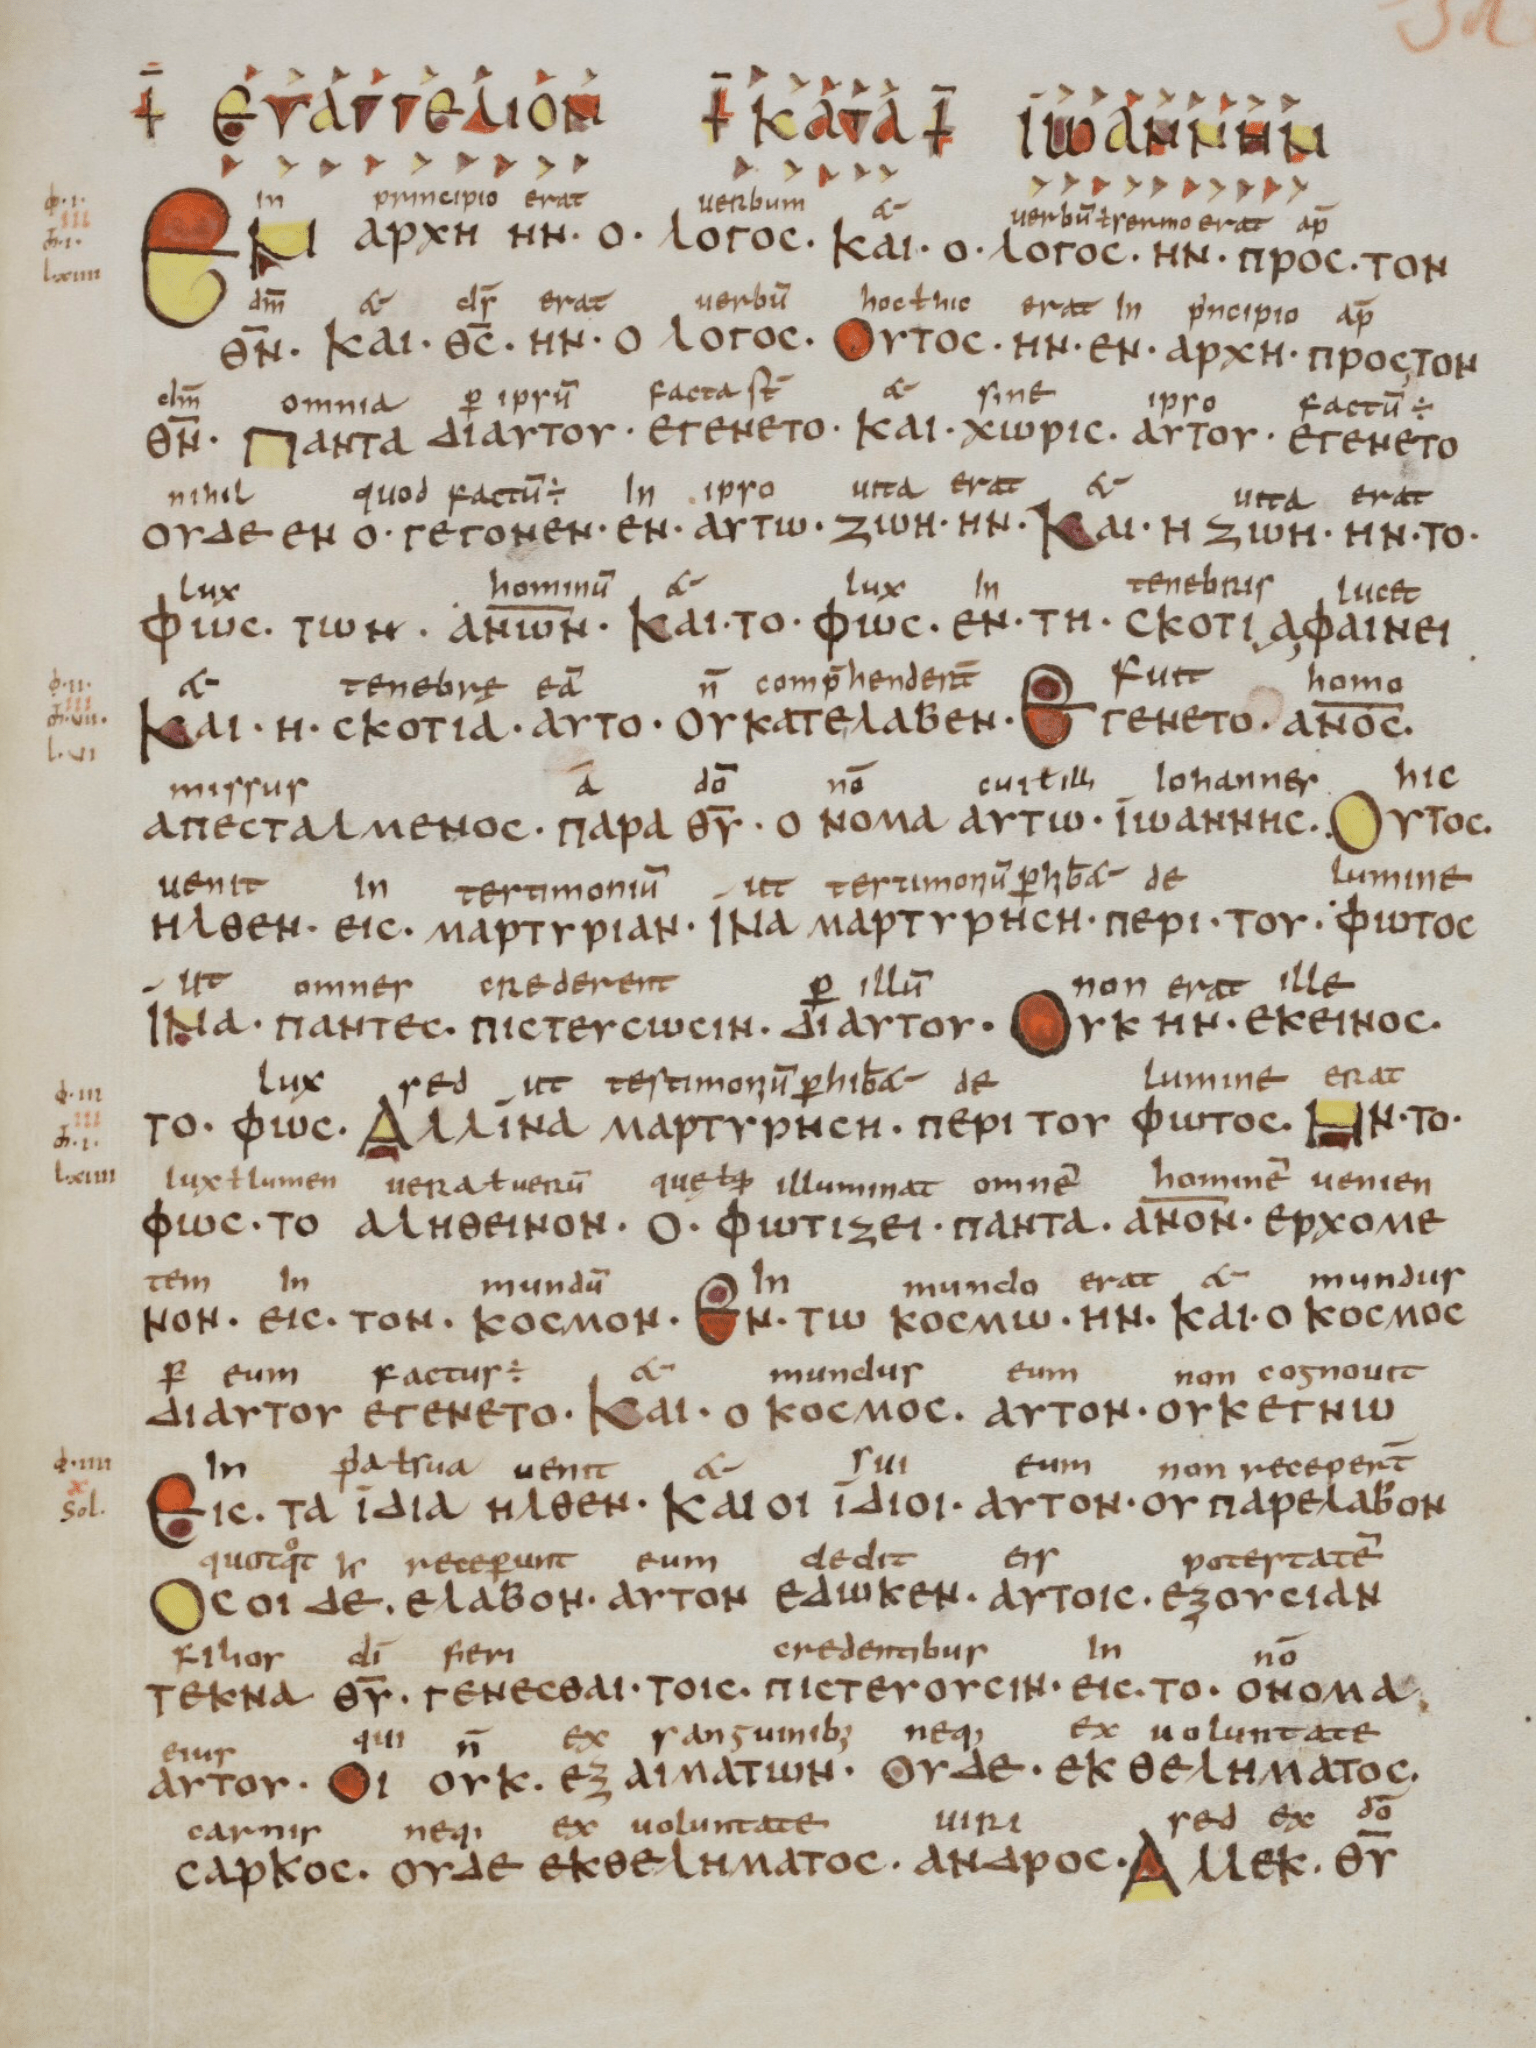 ϯ ΕΥΑΓΓΕΛΙΟΝ ϯ ΚΑΤΑ ϯ ΙΩΑΝΝΗΝ
in principio erat uerbum & uerbū ł sermo erat ap̄
ΕΝ ΑΡΧΗ ΗΝ· Ο· ΛΟΓΟC· ΚΑΙ· Ο· ΛΟΓΟC· ΗΝ· ΠΡΟC· ΤΟΝ
dm̄ & ds̄ erat uerbū hoc ł hic erat In pncipio ap̄
Θ̄Ν̄· ΚΑΙ· Θ̄C̄· ΗΝ· Ο ΛΟΓΟC· ΟΥΤΟC· ΗΝ· ΕΝ· ΑΡΧΗ· ΠΡΟC,ΤΟΝ
dm̄ omnia ꝑ ipsū facta st̄ & sine ipso factū ÷
Θ̄Ν̄· ΠΑΝΤΑ ΔΙΑΥΤΟΥ· ΕΓΕΝΕΤΟ· ΚΑΙ· ΧΩΡΙC· ΑΥΤΟΥ· ΕΓΕΝΕΤΟ
nihil quod factū ÷ In ipso uita erat & uita erat
ΟΥΔΕ ΕΝ Ο· ΓΕΓΟΝΕΝ· ΕΝ· ΑΥΤΩ· ΖΩΗ· ΗΝ· ΚΑΙ· Η ΖΩΗ· ΗΝ· ΤΟ·
lux hominū & lux In tenebris lucet
ΦΩC· ΤΩΝ· ᾹΝ̄Ω̄Ν̄· ΚΑΙ· ΤΟ· ΦΩC· ΕΝ· ΤΗ· CΚΟΤΙΑ,ΦΑΙΝΕΙ
& tenebrę eā n̄ comp̄hendert̄ Fuit homo
ΚΑΙ· Η· CΚΟΤΙΑ· ΑΥΤΟ· ΟΥΚΑΤΕΛΑΒΕΝ· ΕΓΕΝΕΤΟ· ᾹΝ̄Ο̄C̄·
missus ā dō nō cui ł illi Iohannes hic
ΑΠΕCΤΑΛΜΕΝΟC· ΠΑΡΑ Θ̄Ῡ· Ο ΝΟΜΑ ΑΥΤΩ· ΪΩΑΝΝΗC· ΟΥΤΟC·
uenit In testimoniū ut testimoniū ꝑhib& de lumine
ΗΛΘΕΝ· ΕΙC· ΜΑΡΤΥΡΙΑΝ· ΪΝΑ ΜΑΡΤΥΡΗCΗ· ΠΕΡΙ· ΤΟΥ· ΦΩΤΟC
ut omnes crederent ꝑ illū non erat ille
ΪΝΑ· ΠΑΝΤΕC· ΠΙCΤΕΥCΩCΙΝ· ΔΙΑΥΤΟΥ· ΟΥΚ ΗΝ· ΕΚΕΙΝΟC·
lux sed ut testimoniū ꝑhib& de lumine erat
ΤΟ· ΦΩC· ΑΛΛΪΝΑ ΜΑΡΤΥΡΗCΗ· ΠΕΡΙ ΤΟΥ ΦΩΤΟC· ΗΝ· ΤΟ·
lux ł lumen uera ł uerū illuminat omnē hominē uenien
ΦΩC· ΤΟ ΑΛΗΘΕΙΝΟΝ· Ο· ΦΩΤΙΖΕΙ· ΠΑΝΤΑ· ᾹΝ̄Ο̄Ν̄· ΕΡΧΟΜΕ
tem In mundū In mundo erat & mundus
ΝΟΝ· ΕΙC· ΤΟΝ· ΚΟCΜΟΝ· ΕΝ· ΤΩ ΚΟCΜΩ· ΗΝ· ΚΑΙ· Ο ΚΟCΜΟC
ꝑ eum factus ÷ & mundus eum non cognouit
ΔΙΑΥΤΟΥ ΕΓΕΝΕΤΟ· ΚΑΙ· Ο ΚΟCΜΟC· ΑΥΤΟΝ· ΟΥΚΕΓΝΩ
In ꝓpa ł sua uenit & sui eum non recepert̄
ΕΙC· ΤΑ ΪΔΙΑ ΗΛΘΕΝ· ΚΑΙ ΟΙ ΪΔΙΟΙ· ΑΥΤΟΝ· ΟΥ ΠΑΡΕΛΑΒΟΝ
receperunt eum dedit eis potestatē
ΟCΟΙ ΔΕ· ΕΛΑΒΟΝ· ΑΥΤΟΝ ΕΔΩΚΕΝ· ΑΥΤΟΙC· ΕΞΟΥCΙΑΝ
filios dī fieri credentibus In nō
ΤΕΚΝΑ Θ̄Ῡ· ΓΕΝΕCΘΑΙ· ΤΟΙC· ΠΙCΤΕΥΟΥCΙΝ· ΕΙC· ΤΟ· ΟΝΟΜΑ
eius qui n̄ ex sanguinib; neq; ex uoluntate
ΑΥΤΟΥ· ΟΙ ΟΥΚ· ΕΞ ΑΙΜΑΤΩΝ· ΟΥΔΕ· ΕΚ ΘΕΛΗΜΑΤΟC·
carnis neq; ex uoluntate uiri sed ex dō
CΑΡΚΟC· ΟΥΔΕ ΕΚΘΕΛΗΜΑΤΟC· ΑΝΔΡΟC· ΑΛΛΕΚ· Θ̄Ῡ